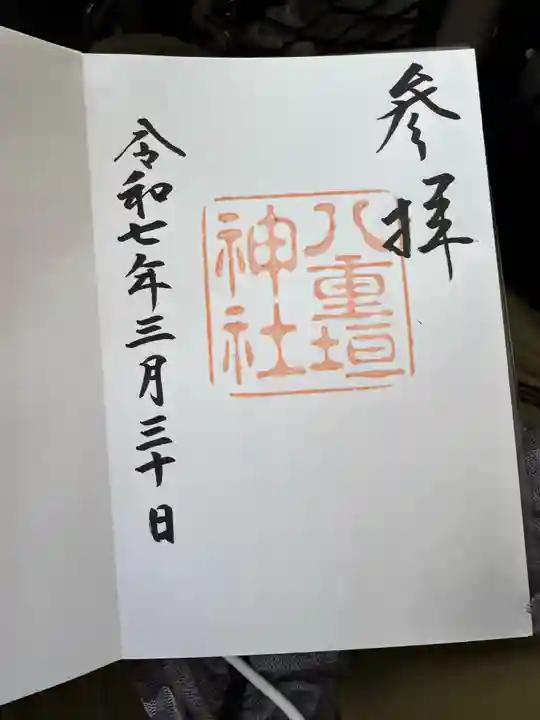 参拝
八重垣
神社
令和七年三月三十日